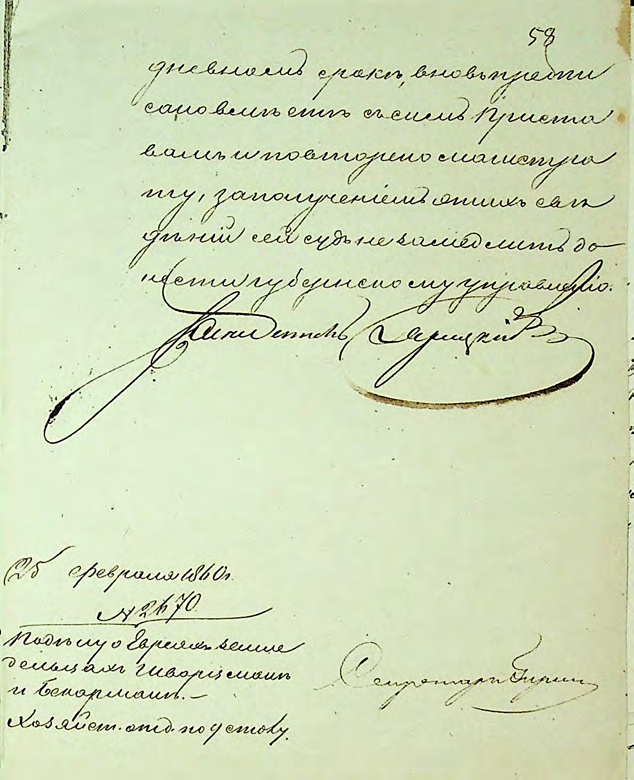 58
дневномъ срокъ, вновь предпи
сано вмѣстѣ съ симъ Приста
вамъ и повторено магистра
ту, заполученіемъ этихъ свѣ
дѣній сей судъ не замедлитъ до
нести губернскому управленію.
Засѣдатель
25 февраля 1860 г.
№ 2670
По дѣлу о Евреяхъ земле
дельцахъ Шварцманѣ
и
Хозяйст. отд. по 9 столу.
Секретарь